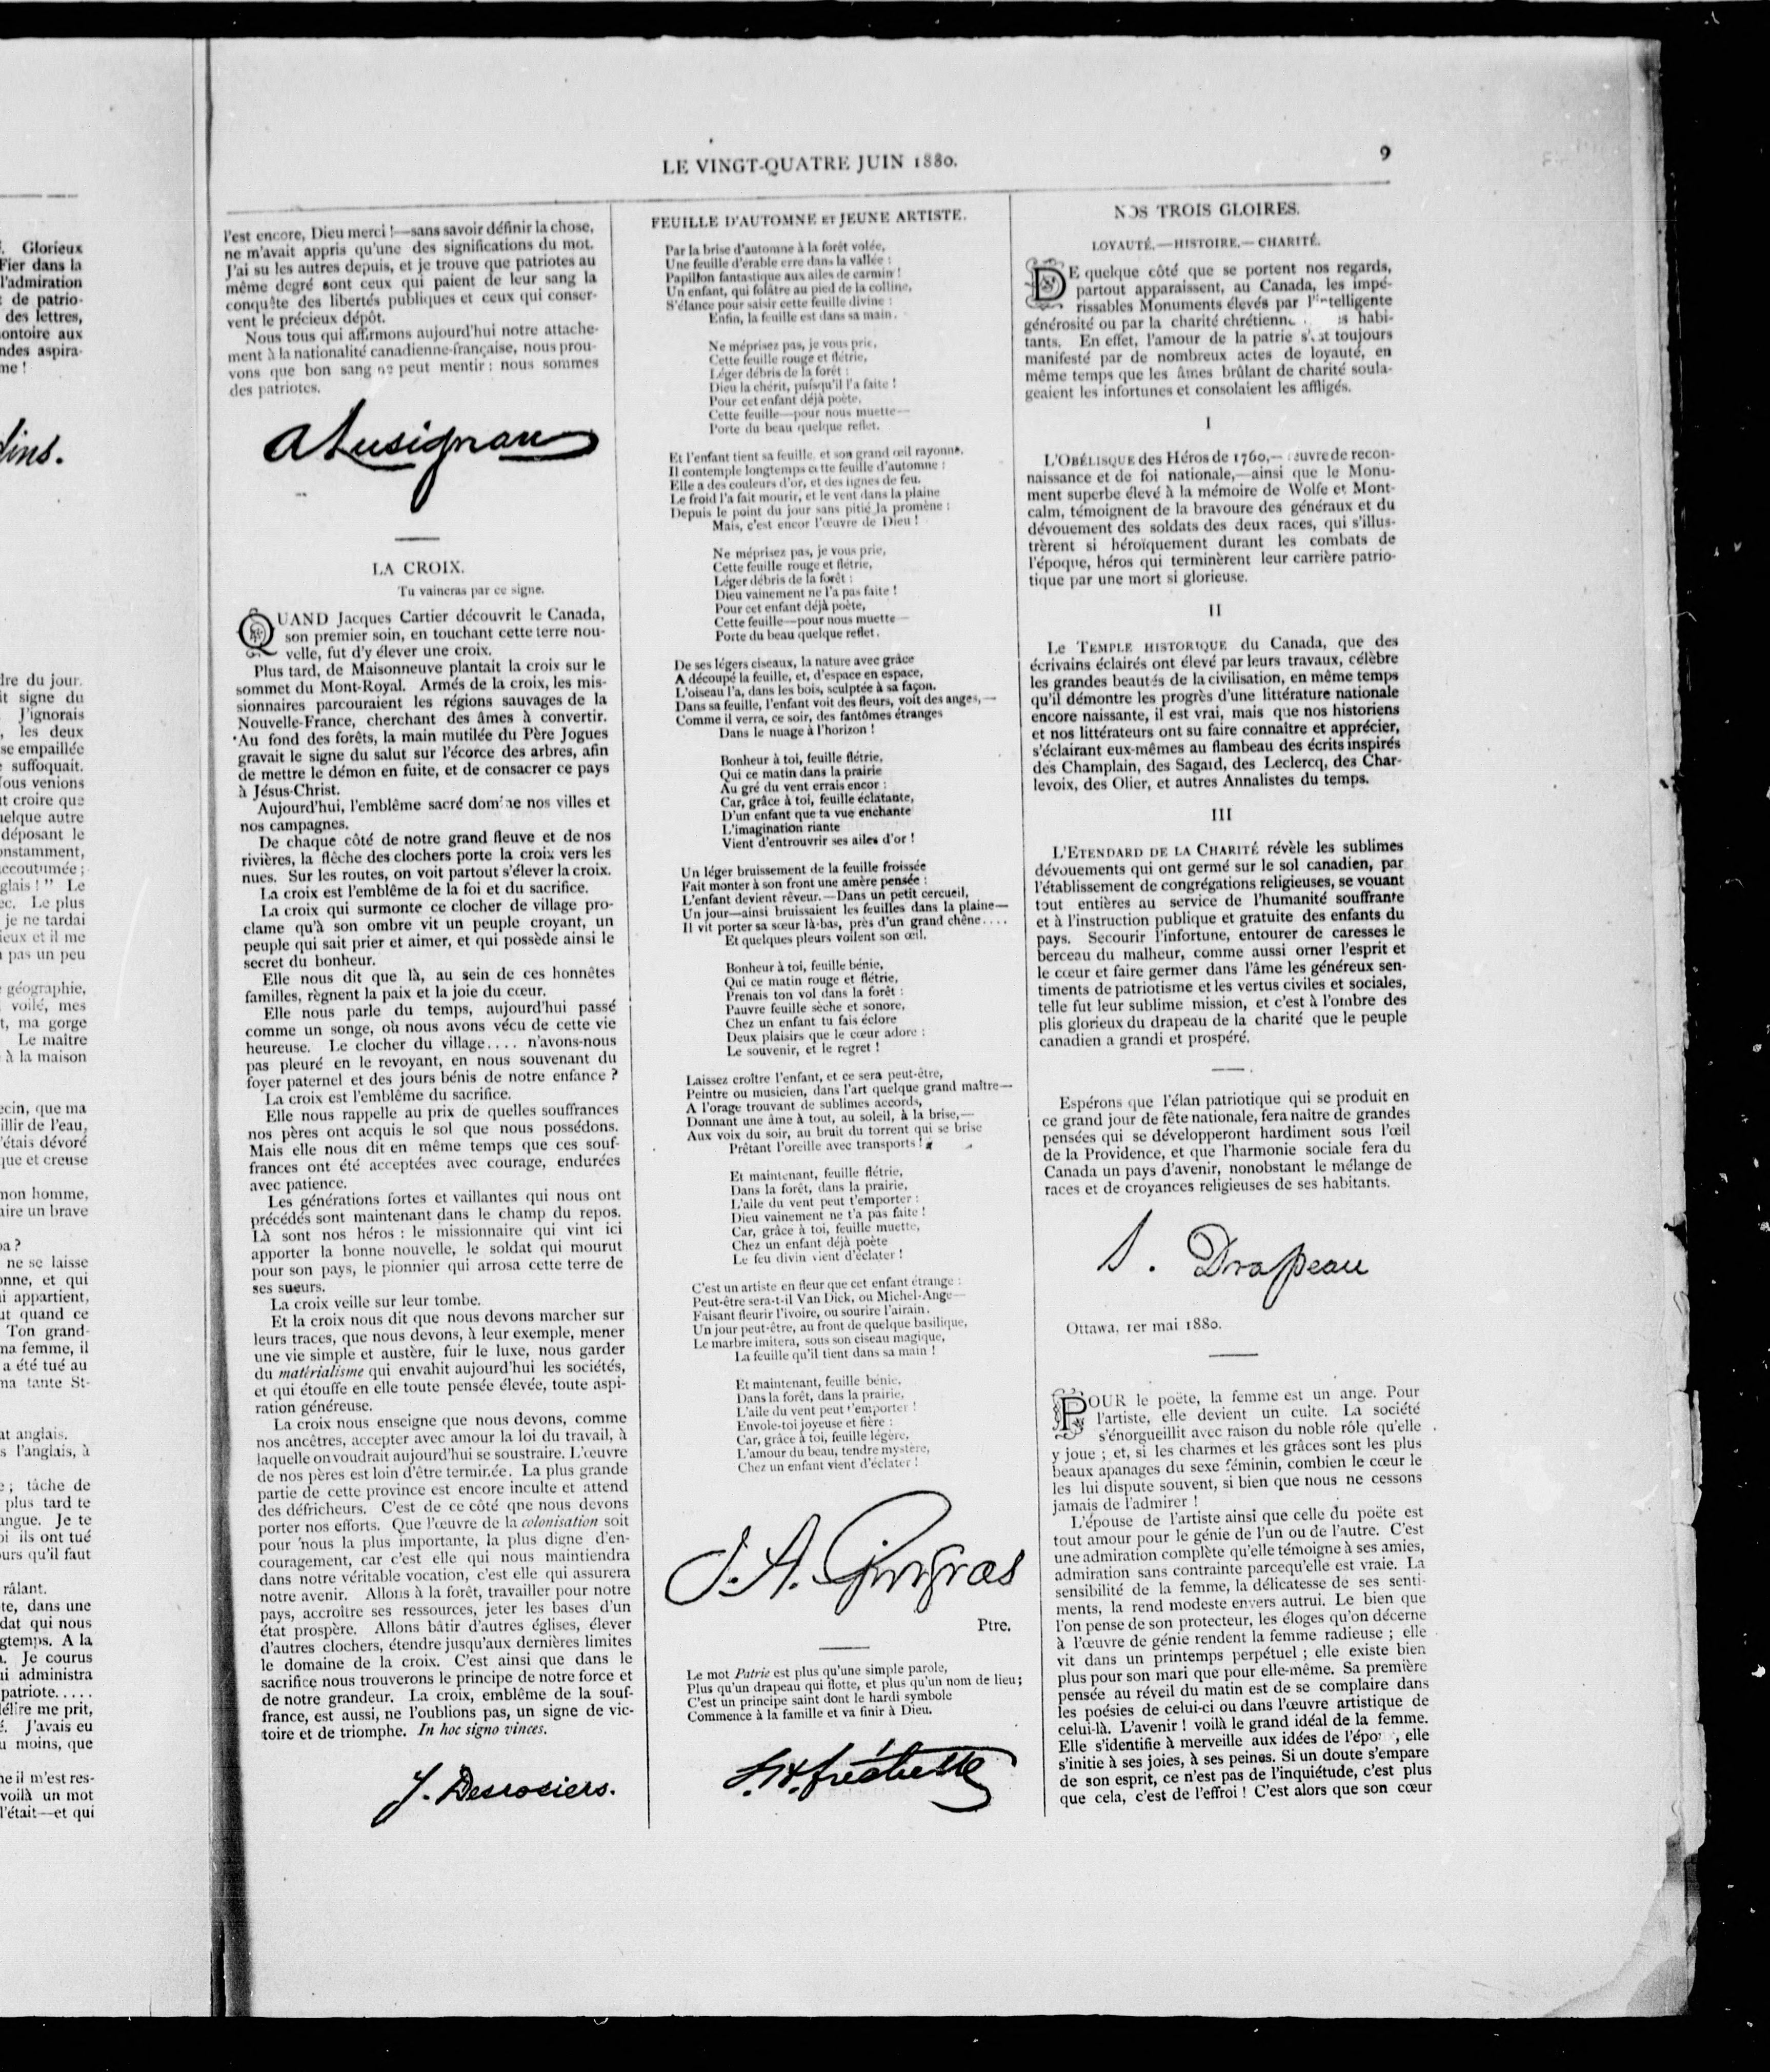 LE VINGT-QUATRE JUIN 1880.
9
Glorieux
Fier dans la
l'admiration
de patrio-
des lettres,
ontoire aux
ndes aspira-
me !
dins.
dre du jour.
it signe du
J'ignorais
, les deux
se empaillée
suffoquait.
Nous venions
t croire que
uelque autre
déposant le
onstamment,
ccoutumée ;
glais ! " Le
ec. Le plus
je ne tardai
ieux et il me
pas un peu
géographie,
voilé, mes
t, ma gorge
Le maître
à la maison
ecin, que ma
illir de l'eau,
'étais dévoré
que et creuse
mon homme,
aire un brave
pa ?
ne se laisse
onne, et qui
i appartient,
ut quand ce
Ton grand-
ma femme, il
a été tué au
ma tante St-
at anglais.
s l'anglais, à
e ; tâche de
plus tard te
angue. Je te
oi ils ont tué
ours qu'il faut
râlant.
te, dans une
dat qui nous
gtemps. A la
. Je courus
ui administra
patriote.....
délire me prit,
é. J'avais eu
u moins, que
ne il m'est res-
voilà un mot
l'était—et qui
l'est encore, Dieu merci !—sans savoir définir la chose,
ne m'avait appris qu'une des significations du mot.
J'ai su les autres depuis, et je trouve que patriotes au
même degré sont ceux qui paient de leur sang la
conquête des libertés publiques et ceux qui conser-
vent le précieux dépôt.
Nous tous qui affirmons aujourd'hui notre attache-
ment à la nationalité canadienne-française, nous prou-
vons que bon sang ne peut mentir : nous sommes
des patriotes.
A Lusignan
LA CROIX.
Tu vaincras par ce signe.
QUAND Jacques Cartier découvrit le Canada,
son premier soin, en touchant cette terre nou-
velle, fut d'y élever une croix.
Plus tard, de Maisonneuve plantait la croix sur le
sommet du Mont-Royal. Armés de la croix, les mis-
sionnaires parcouraient les régions sauvages de la
Nouvelle-France, cherchant des âmes à convertir.
Au fond des forêts, la main mutilée du Père Jogues
gravait le signe du salut sur l'écorce des arbres, afin
de mettre le démon en fuite, et de consacrer ce pays
à Jésus-Christ.
Aujourd'hui, l'emblême sacré domine nos villes et
nos campagnes.
De chaque côté de notre grand fleuve et de nos
rivières, la flêche des clochers porte la croix vers les
nues. Sur les routes, on voit partout s'élever la croix.
La croix est l'emblême de la foi et du sacrifice.
La croix qui surmonte ce clocher de village pro-
clame qu'à son ombre vit un peuple croyant, un
peuple qui sait prier et aimer, et qui possède ainsi le
secret du bonheur.
Elle nous dit que là, au sein de ces honnêtes
familles, règnent la paix et la joie du cœur.
Elle nous parle du temps, aujourd'hui passé
comme un songe, où nous avons vécu de cette vie
heureuse. Le clocher du village.... n'avons-nous
pas pleuré en le revoyant, en nous souvenant du
foyer paternel et des jours bénis de notre enfance ?
La croix est l'emblême du sacrifice.
Elle nous rappelle au prix de quelles souffrances
nos pères ont acquis le sol que nous possédons.
Mais elle nous dit en même temps que ces souf-
frances ont été acceptées avec courage, endurées
avec patience.
Les générations fortes et vaillantes qui nous ont
précédés sont maintenant dans le champ du repos.
Là sont nos héros : le missionnaire qui vint ici
apporter la bonne nouvelle, le soldat qui mourut
pour son pays, le pionnier qui arrosa cette terre de
ses sueurs.
La croix veille sur leur tombe.
Et la croix nous dit que nous devons marcher sur
leurs traces, que nous devons, à leur exemple, mener
une vie simple et austère, fuir le luxe, nous garder
du matérialisme qui envahit aujourd'hui les sociétés,
et qui étouffe en elle toute pensée élevée, toute aspi-
ration généreuse.
La croix nous enseigne que nous devons, comme
nos ancêtres, accepter avec amour la loi du travail, à
laquelle on voudrait aujourd'hui se soustraire. L'œuvre
de nos pères est loin d'être terminée. La plus grande
partie de cette province est encore inculte et attend
des défricheurs. C'est de ce côté qne nous devons
porter nos efforts. Que l'œuvre de la colonisation soit
pour nous la plus importante, la plus digne d'en-
couragement, car c'est elle qui nous maintiendra
dans notre véritable vocation, c'est elle qui assurera
notre avenir. Allons à la forêt, travailler pour notre
pays, accroître ses ressources, jeter les bases d'un
état prospère. Allons bâtir d'autres églises, élever
d'autres clochers, étendre jusqu'aux dernières limites
le domaine de la croix. C'est ainsi que dans le
sacrifice nous trouverons le principe de notre force et
de notre grandeur. La croix, emblême de la souf-
france, est aussi, ne l'oublions pas, un signe de vic-
toire et de triomphe. In hoc signo vinces.
J. Desrosiers.
FEUILLE D'AUTOMNE ET JEUNE ARTISTE.
Par la brise d'automne à la forêt volée,
Une feuille d'érable erre dans la vallée :
Papillon fantastique aux ailes de carmin !
Un enfant, qui folâtre au pied de la colline,
S'élance pour saisir cette feuille divine :
Enfin, la feuille est dans sa main.
Ne méprisez pas, je vous prie,
Cette feuille rouge et flétrie,
Léger débris de la forêt :
Dieu la chérit, puisqu'il l'a faite !
Pour cet enfant déjà poète,
Cette feuille—pour nous muette—
Porte du beau quelque reflet.
Et l'enfant tient sa feuille, et son grand œil rayonne.
Il contemple longtemps cette feuille d'automne :
Elle a des couleurs d'or, et des lignes de feu.
Le froid l'a fait mourir, et le vent dans la plaine
Depuis le point du jour sans pitié la promène :
Mais, c'est encor l'œuvre de Dieu !
Ne méprisez pas, je vous prie,
Cette feuille rouge et flétrie,
Léger débris de la forêt :
Dieu vainement ne l'a pas faite !
Pour cet enfant déjà poète,
Cette feuille—pour nous muette—
Porte du beau quelque reflet.
De ses légers ciseaux, la nature avec grâce
A découpé la feuille, et, d'espace en espace,
L'oiseau l'a, dans les bois, sculptée à sa façon.
Dans sa feuille, l'enfant voit des fleurs, voit des anges,—
Comme il verra, ce soir, des fantômes étranges
Dans le nuage à l'horizon !
Bonheur à toi, feuille flétrie,
Qui ce matin dans la prairie
Au gré du vent errais encor :
Car, grâce à toi, feuille éclatante,
D'un enfant que ta vue enchante
L'imagination riante
Vient d'entrouvrir ses ailes d'or !
Un léger bruissement de la feuille froissée
Fait monter à son front une amère pensée :
L'enfant devient rêveur.—Dans un petit cercueil,
Un jour—ainsi bruissaient les feuilles dans la plaine—
Il vit porter sa sœur là-bas, près d'un grand chêne....
Et quelques pleurs voilent son œil.
Bonheur à toi, feuille bénie,
Qui ce matin rouge et flétrie,
Prenais ton vol dans la forêt :
Pauvre feuille sèche et sonore,
Chez un enfant tu fais éclore
Deux plaisirs que le cœur adore :
Le souvenir, et le regret !
Laissez croître l'enfant, et ce sera peut-être,
Peintre ou musicien, dans l'art quelque grand maître—
A l'orage trouvant de sublimes accords,
Donnant une âme à tout, au soleil, à la brise,—
Aux voix du soir, au bruit du torrent qui se brise
Prêtant l'oreille avec transports !
Et maintenant, feuille flétrie,
Dans la forêt, dans la prairie,
L'aile du vent peut t'emporter :
Dieu vainement ne t'a pas faite !
Car, grâce à toi, feuille muette,
Chez un enfant déjà poète
Le feu divin vient d'éclater !
C'est un artiste en fleur que cet enfant étrange :
Peut-être sera-t-il Van Dick, ou Michel-Ange—
Faisant fleurir l'ivoire, ou sourire l'airain.
Un jour peut-être, au front de quelque basilique,
Le marbre imitera, sous son ciseau magique,
La feuille qu'il tient dans sa main !
Et maintenant, feuille bénie,
Dans la forêt, dans la prairie,
L'aile du vent peut t'emporter !
Envole-toi joyeuse et fière :
Car, grâce à toi, feuille légère,
L'amour du beau, tendre mystère,
Chez un enfant vient d'éclater !
J. A. Gingras
Ptre.
Le mot Patrie est plus qu'une simple parole,
Plus qu'un drapeau qui flotte, et plus qu'un nom de lieu ;
C'est un principe saint dont le hardi symbole
Commence à la famille et va finir à Dieu.
L. H. Fréchette
NOS TROIS GLOIRES.
LOYAUTÉ.—HISTOIRE.—CHARITÉ.
DE quelque côté que se portent nos regards,
partout apparaissent, au Canada, les impé-
rissables Monuments élevés par l'intelligente
générosité ou par la charité chrétienne habi-
tants. En effet, l'amour de la patrie s'est toujours
manifesté par de nombreux actes de loyauté, en
même temps que les âmes brûlant de charité soula-
geaient les infortunes et consolaient les affligés.
I
L'OBÉLISQUE des Héros de 1760,—œuvre de recon-
naissance et de foi nationale,—ainsi que le Monu-
ment superbe élevé à la mémoire de Wolfe et Mont-
calm, témoignent de la bravoure des généraux et du
dévouement des soldats des deux races, qui s'illus-
trèrent si héroïquement durant les combats de
l'époque, héros qui terminèrent leur carrière patrio-
tique par une mort si glorieuse.
II
Le TEMPLE HISTORIQUE du Canada, que des
écrivains éclairés ont élevé par leurs travaux, célèbre
les grandes beautés de la civilisation, en même temps
qu'il démontre les progrès d'une littérature nationale
encore naissante, il est vrai, mais que nos historiens
et nos littérateurs ont su faire connaître et apprécier,
s'éclairant eux-mêmes au flambeau des écrits inspirés
des Champlain, des Sagard, des Leclercq, des Char-
levoix, des Olier, et autres Annalistes du temps.
III
L'ETENDARD DE LA CHARITÉ révèle les sublimes
dévouements qui ont germé sur le sol canadien, par
l'établissement de congrégations religieuses, se vouant
tout entières au service de l'humanité souffrante
et à l'instruction publique et gratuite des enfants du
pays. Secourir l'infortune, entourer de caresses le
berceau du malheur, comme aussi orner l'esprit et
le cœur et faire germer dans l'âme les généreux sen-
timents de patriotisme et les vertus civiles et sociales,
telle fut leur sublime mission, et c'est à l'ombre des
plis glorieux du drapeau de la charité que le peuple
canadien a grandi et prospéré.
Espérons que l'élan patriotique qui se produit en
ce grand jour de fête nationale, fera naître de grandes
pensées qui se développeront hardiment sous l'œil
de la Providence, et que l'harmonie sociale fera du
Canada un pays d'avenir, nonobstant le mélange de
races et de croyances religieuses de ses habitants.
S. Drapeau
Ottawa, 1er mai 1880.
POUR le poëte, la femme est un ange. Pour
l'artiste, elle devient un culte. La société
s'énorgueillit avec raison du noble rôle qu'elle
y joue ; et, si les charmes et les grâces sont les plus
beaux apanages du sexe féminin, combien le cœur le
les lui dispute souvent, si bien que nous ne cessons
jamais de l'admirer !
L'épouse de l'artiste ainsi que celle du poëte est
tout amour pour le génie de l'un ou de l'autre. C'est
une admiration complète qu'elle témoigne à ses amies,
admiration sans contrainte parcequ'elle est vraie. La
sensibilité de la femme, la délicatesse de ses senti-
ments, la rend modeste envers autrui. Le bien que
l'on pense de son protecteur, les éloges qu'on décerne
à l'œuvre de génie rendent la femme radieuse ; elle
vit dans un printemps perpétuel ; elle existe bien
plus pour son mari que pour elle-même. Sa première
pensée au réveil du matin est de se complaire dans
les poésies de celui-ci ou dans l'œuvre artistique de
celui-là. L'avenir ! voilà le grand idéal de la femme.
Elle s'identifie à merveille aux idées de l'époux, elle
s'initie à ses joies, à ses peines. Si un doute s'empare
de son esprit, ce n'est pas de l'inquiétude, c'est plus
que cela, c'est de l'effroi ! C'est alors que son cœur